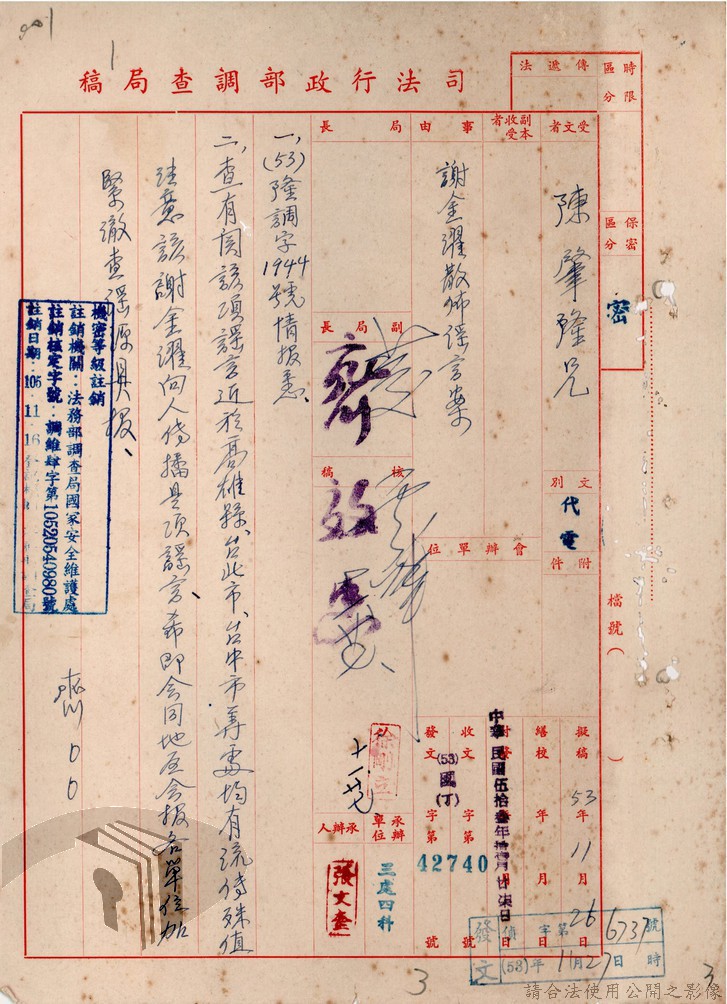 司法行政部調查局稿
時限區分
傳遞法
保密區分
密
檔號(　)
受文者
陳肇隆兄
副本收受者
事由
謝金濯散佈謠言案
文別
代電
附件
會辦單位
局長
副局長
核稿
擬稿 53年11月26日
繕校 年 月 日
封發
中華民國伍拾叁年拾壹月廿柒日
收文 字第 號
發文 (53)國(丁)字第42740號
承辦單位
三處四科
承辦人
張文奎
徐剛立
一、(53)隆調字1944號情报悉、
二、查有関該項謠言近於高雄縣、台北市、台中市等處均有流传殊值
注意該謝金濯向人传播是項謠言、希即会同地区会报各單位加
緊澈查謠源具报、
齊
機密等級註銷
註銷機關：法務部調查局國家安全維護處
註銷核定字號：調維肆字第10520540980號
註銷日期：105.11.16
發文
偵字第6737號
(53)年11月27日 時
3
3
請合法使用公開之影像